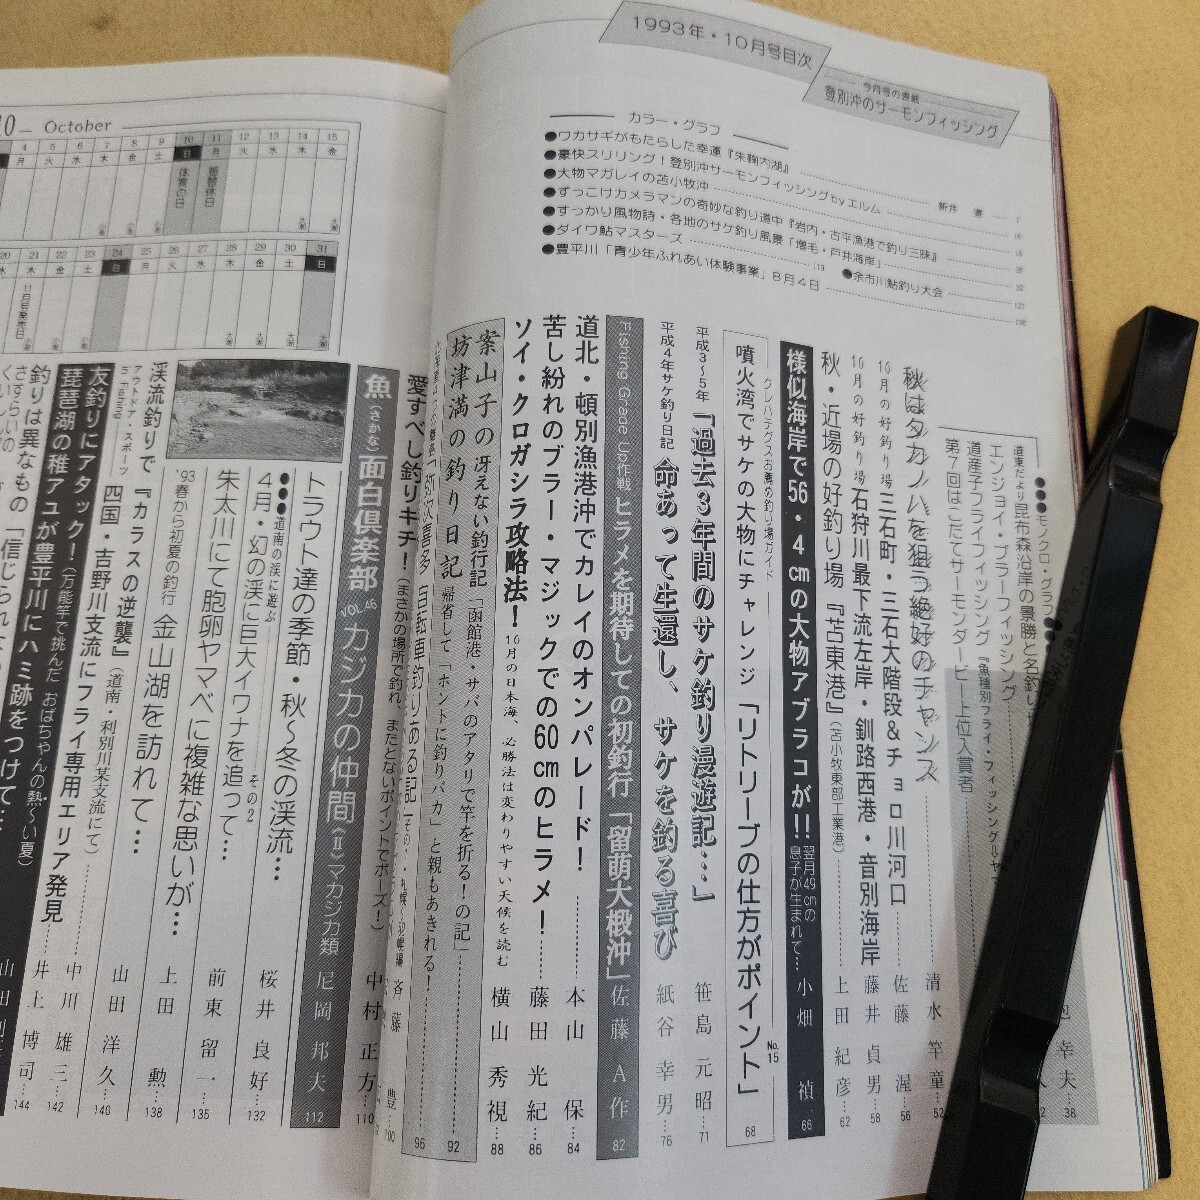 1993年・10月号目次
今月号の表紙
登別沖のサーモンフィッシング
カラー・グラフ
●ワカサギがもたらした幸運『朱鞠内湖』
●豪快スリリング！登別沖サーモンフィッシングbyエルム 新井 7
●大物マガレイの苫小牧沖
●ずっこけカメラマンの奇妙な釣り道中『岩内・古平漁港で釣り三昧』
●すっかり風物詩・各地のサケ釣り風景「増毛・戸井海岸」
●ダイワ鮎マスターズ 119 ●余市川鮎釣り大会
●豊平川「青少年ふれあい体験事業」8月4日
●●●モノクロ・グラフ●
道東だより昆布森沿岸の景勝と名釣り
エンジョイ・ブラーフィッシング
道産子フライフィッシング『魚種別フライ・フィッシング
第7回はこだてサーモンダービー上位入賞者
幸夫…38
秋はタカノハを狙う絶好のチャンス…清水竿童…52
10月の好釣り場 三石町・三石大階段&チョロ川河口…佐藤渥…56
10月の好釣り場 石狩川最下流左岸・釧路西港・音別海岸 藤井貞男…58
秋・近場の好釣り場『苫東港』(苫小牧東部工業港)…上田紀彦…62
様似海岸で56・4cmの大物アブラコが!! 翌月49cmの息子が生まれて… 小畑禎 66
噴火湾でサケの大物にチャレンジ「リトリーブの仕方がポイント」No.15 68
平成3～5年「過去3年間のサケ釣り漫遊記…」笹島元昭…71
平成4年サケ釣り日記 命あって生還し、サケを釣る喜び 紙谷幸男…76
Fishing Grade Up作戦 ヒラメを期待しての初釣行「留萌大椴沖」佐藤A作 82
道北・頓別漁港沖でカレイのオンパレード！…本山保…84
苦し紛れのブラー・マジックでの60cmのヒラメ！…藤田光紀…86
ソイ・クロガシラ攻略法！ 10月の日本海、必勝法は変わりやすい天候を読む 横山秀視…88
案山子の冴えない釣行記「函館港・サバのアタリで竿を折る！の記」…92
坊津満の釣り日記 帰省して「ホントに釣りバカ」と親もあきれる！…96
「弥次喜多 自転車釣りある記」 斉藤豊…100
愛すべし釣りキチ！(まさかの場所で釣れ、またとないポイントでポーズ！) 中村正方…110
魚(さかな)面白倶楽部 VOL.46 カジカの仲間〈II〉マカジカ類 尼岡邦夫 112
トラウト達の季節・秋～冬の渓流…
●●●道南の渓に遊ぶ…その2
4月・幻の渓に巨大イワナを追って… 桜井良好…132
朱太川にて胞卵ヤマベに複雑な思いが… 前東留一…135
'93春から初夏の釣行 金山湖を訪れて… 上田勲…138
渓流釣りで『カラスの逆襲』(道南・利別川某支流にて) 山田洋久…140
アウトドア・スポーツ
四国・吉野川支流にフライ専用エリア発見
友釣りにアタック！(万能竿で挑んだ おばちゃんの熱～い夏) 中川雄三…142
琵琶湖の稚アユが豊平川にハミ跡をつけて… 井上博司…144
釣りは異なもの「信じられな
さすらいの
10 October
11月号発売日
体育の日
振替休日